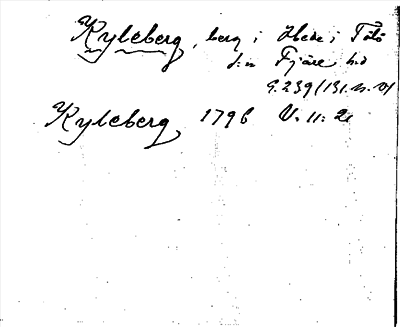 Kyleberg, berg i Hede i Tölö
s:n Fjäre hd
G. 239 (131. n. V)
Kyleberg 1796 V. 11: 21